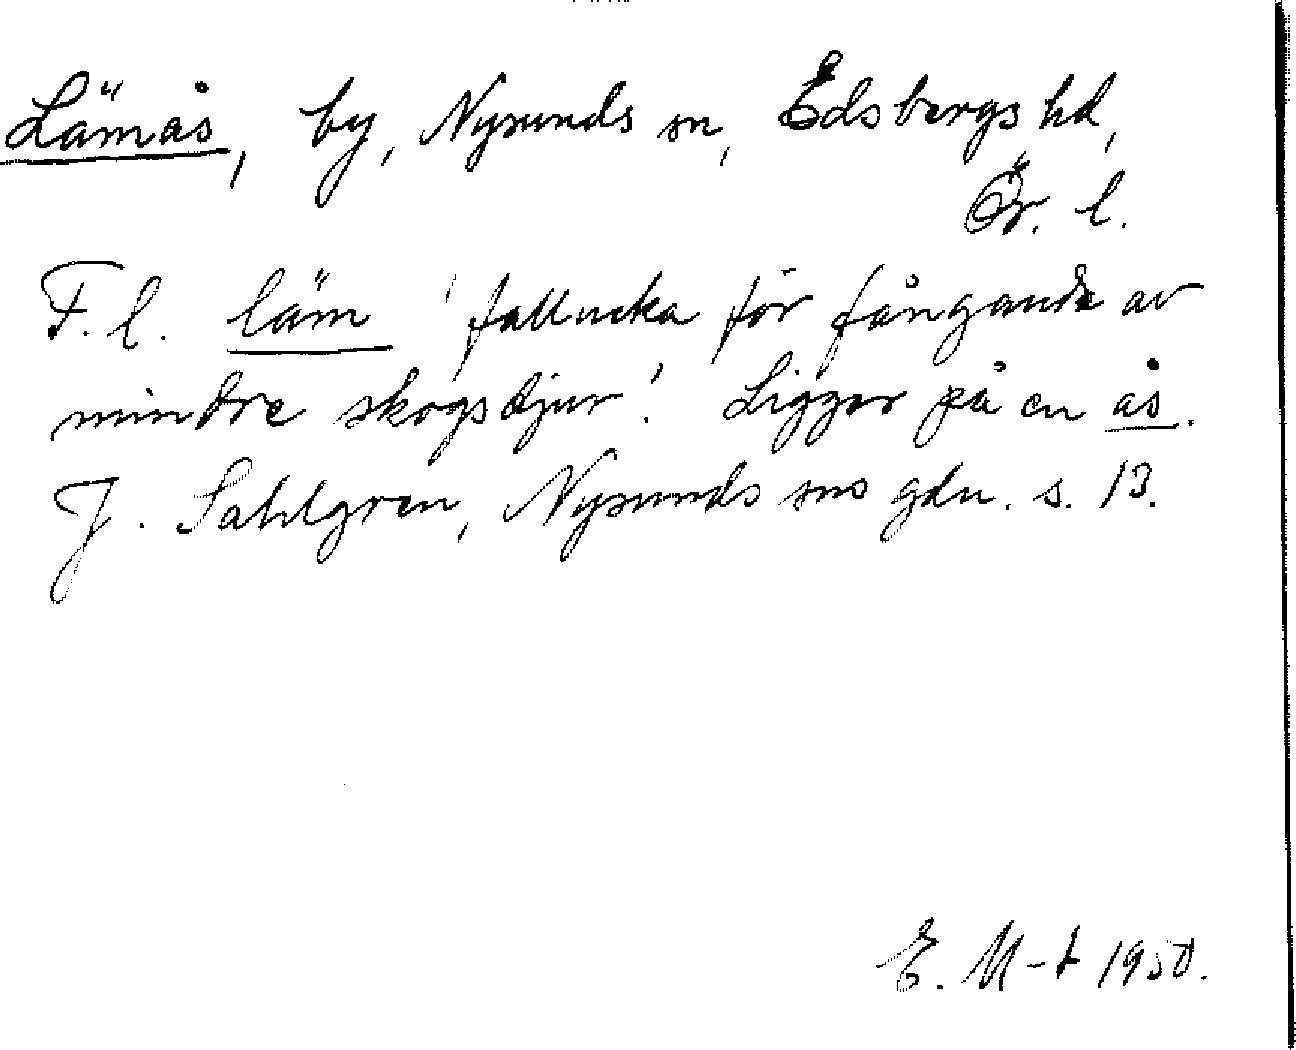 Lämås, by, Nysunds sn, Edsbergs hd,
Ör. l.
F. l. läm 'fallucka för fångande av
mindre skogsdjur'. Ligger på en ås.
J. Sahlgren, Nysunds sns gdn. s. 13.
E. M-t 1950.